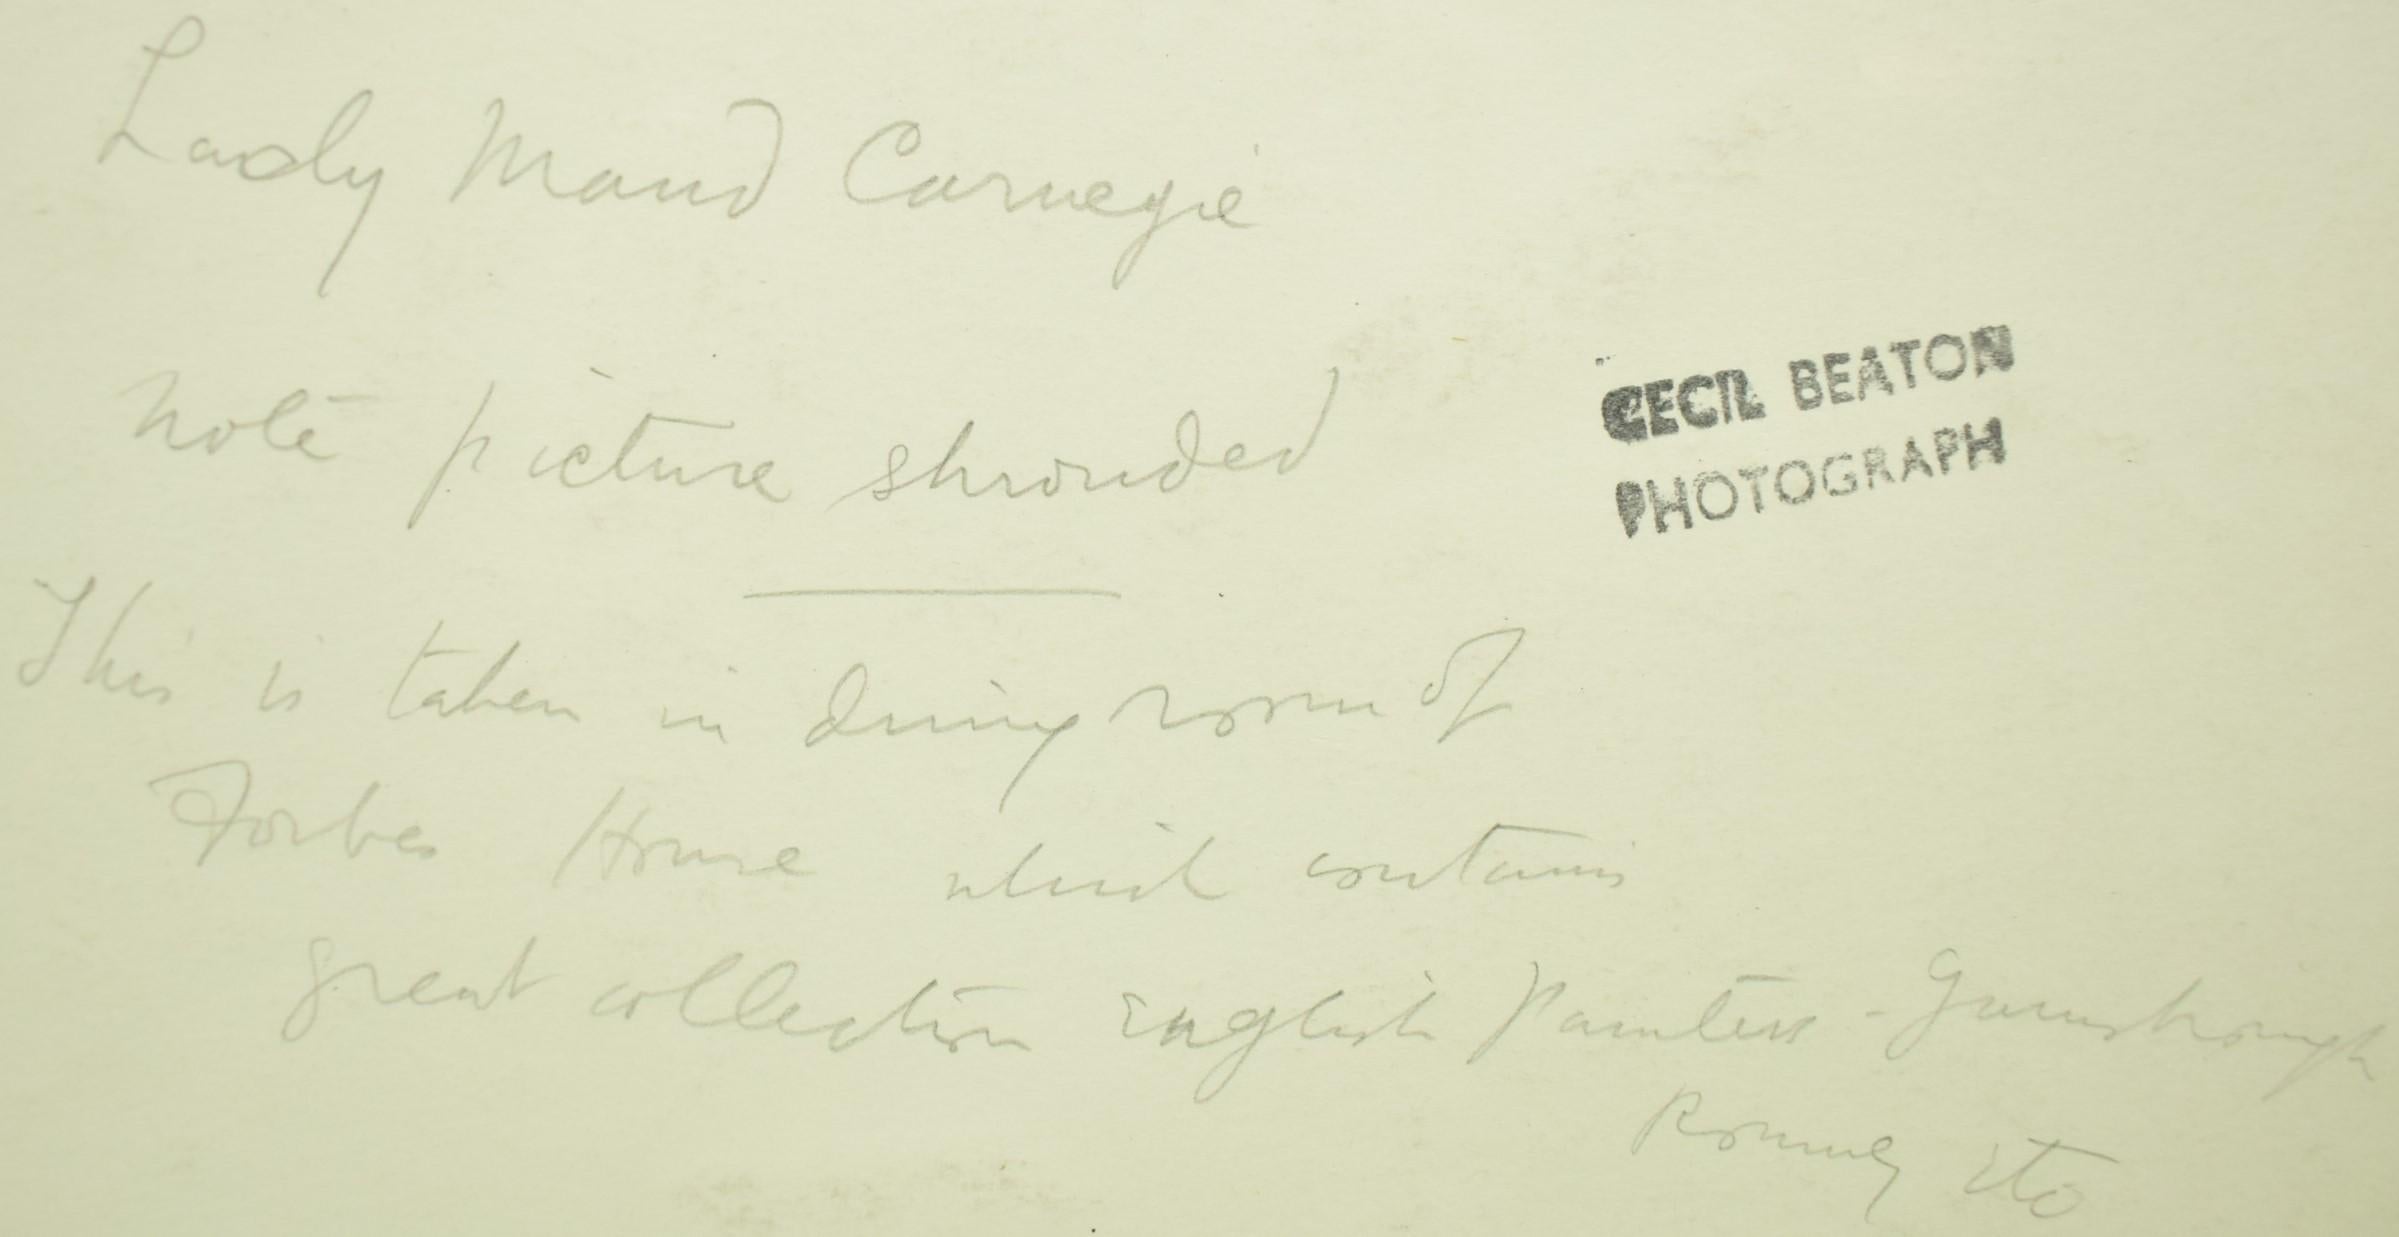 Lady Maud Carnegie
note picture shrouded
CECIL BEATON
PHOTOGRAPH
This is taken in dining room of
Forbes House which contains
great collection English Painters - Gainsborough
Romney etc